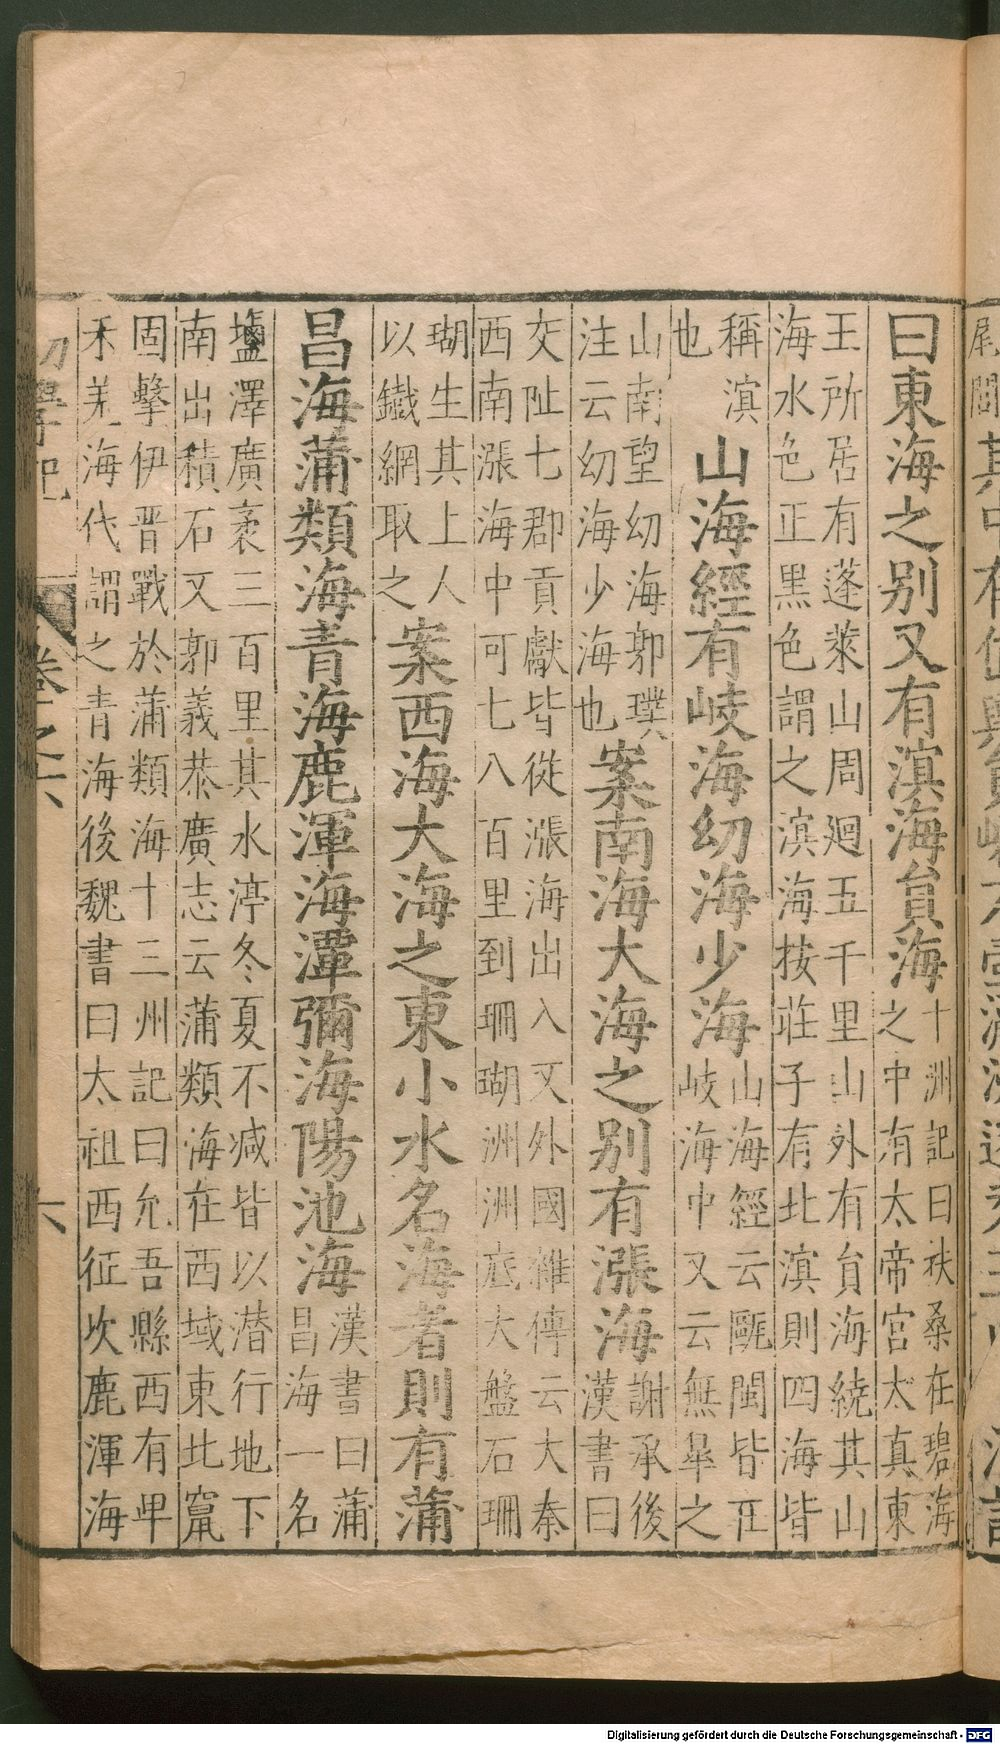 曰東海之别又有滇海負海
十洲記曰扶桑在碧海
之中有太帝宮太真東
王所居有蓬萊山周廻五千里山外有負海繞其山
海水色正黑色謂之溟海按莊子有北溟則四海皆
稱溟
也
山海經有岐海幼海少海
山海經云甌閩皆在
岐海中又云無皐之
山南望幼海郭璞
注云幼海少海也
案南海大海之别有漲海
謝承後
漢書曰
交阯七郡貢獻皆從漲海出入又外國雜傳云大秦
西南漲海中可七八百里到珊瑚洲洲底大盤石珊
瑚生其上人
以鐵網取之
案西海大海之東小水名海者則有蒲
昌海蒲類海青海鹿渾海潭彌海陽池海
漢書曰蒲
昌海一名
鹽澤廣袤三百里其水渟冬夏不减皆以潜行地下
南出積石又郭義恭廣志云蒲類海在西域東北竇
固擊伊吾戰於蒲類海十三州記曰允吾縣西有卑
禾羌海代謂之青海後魏書曰太祖西征次鹿渾海
初學記
卷之六
六
Digitalisierung gefördert durch die Deutsche Forschungsgemeinschaft - DFG